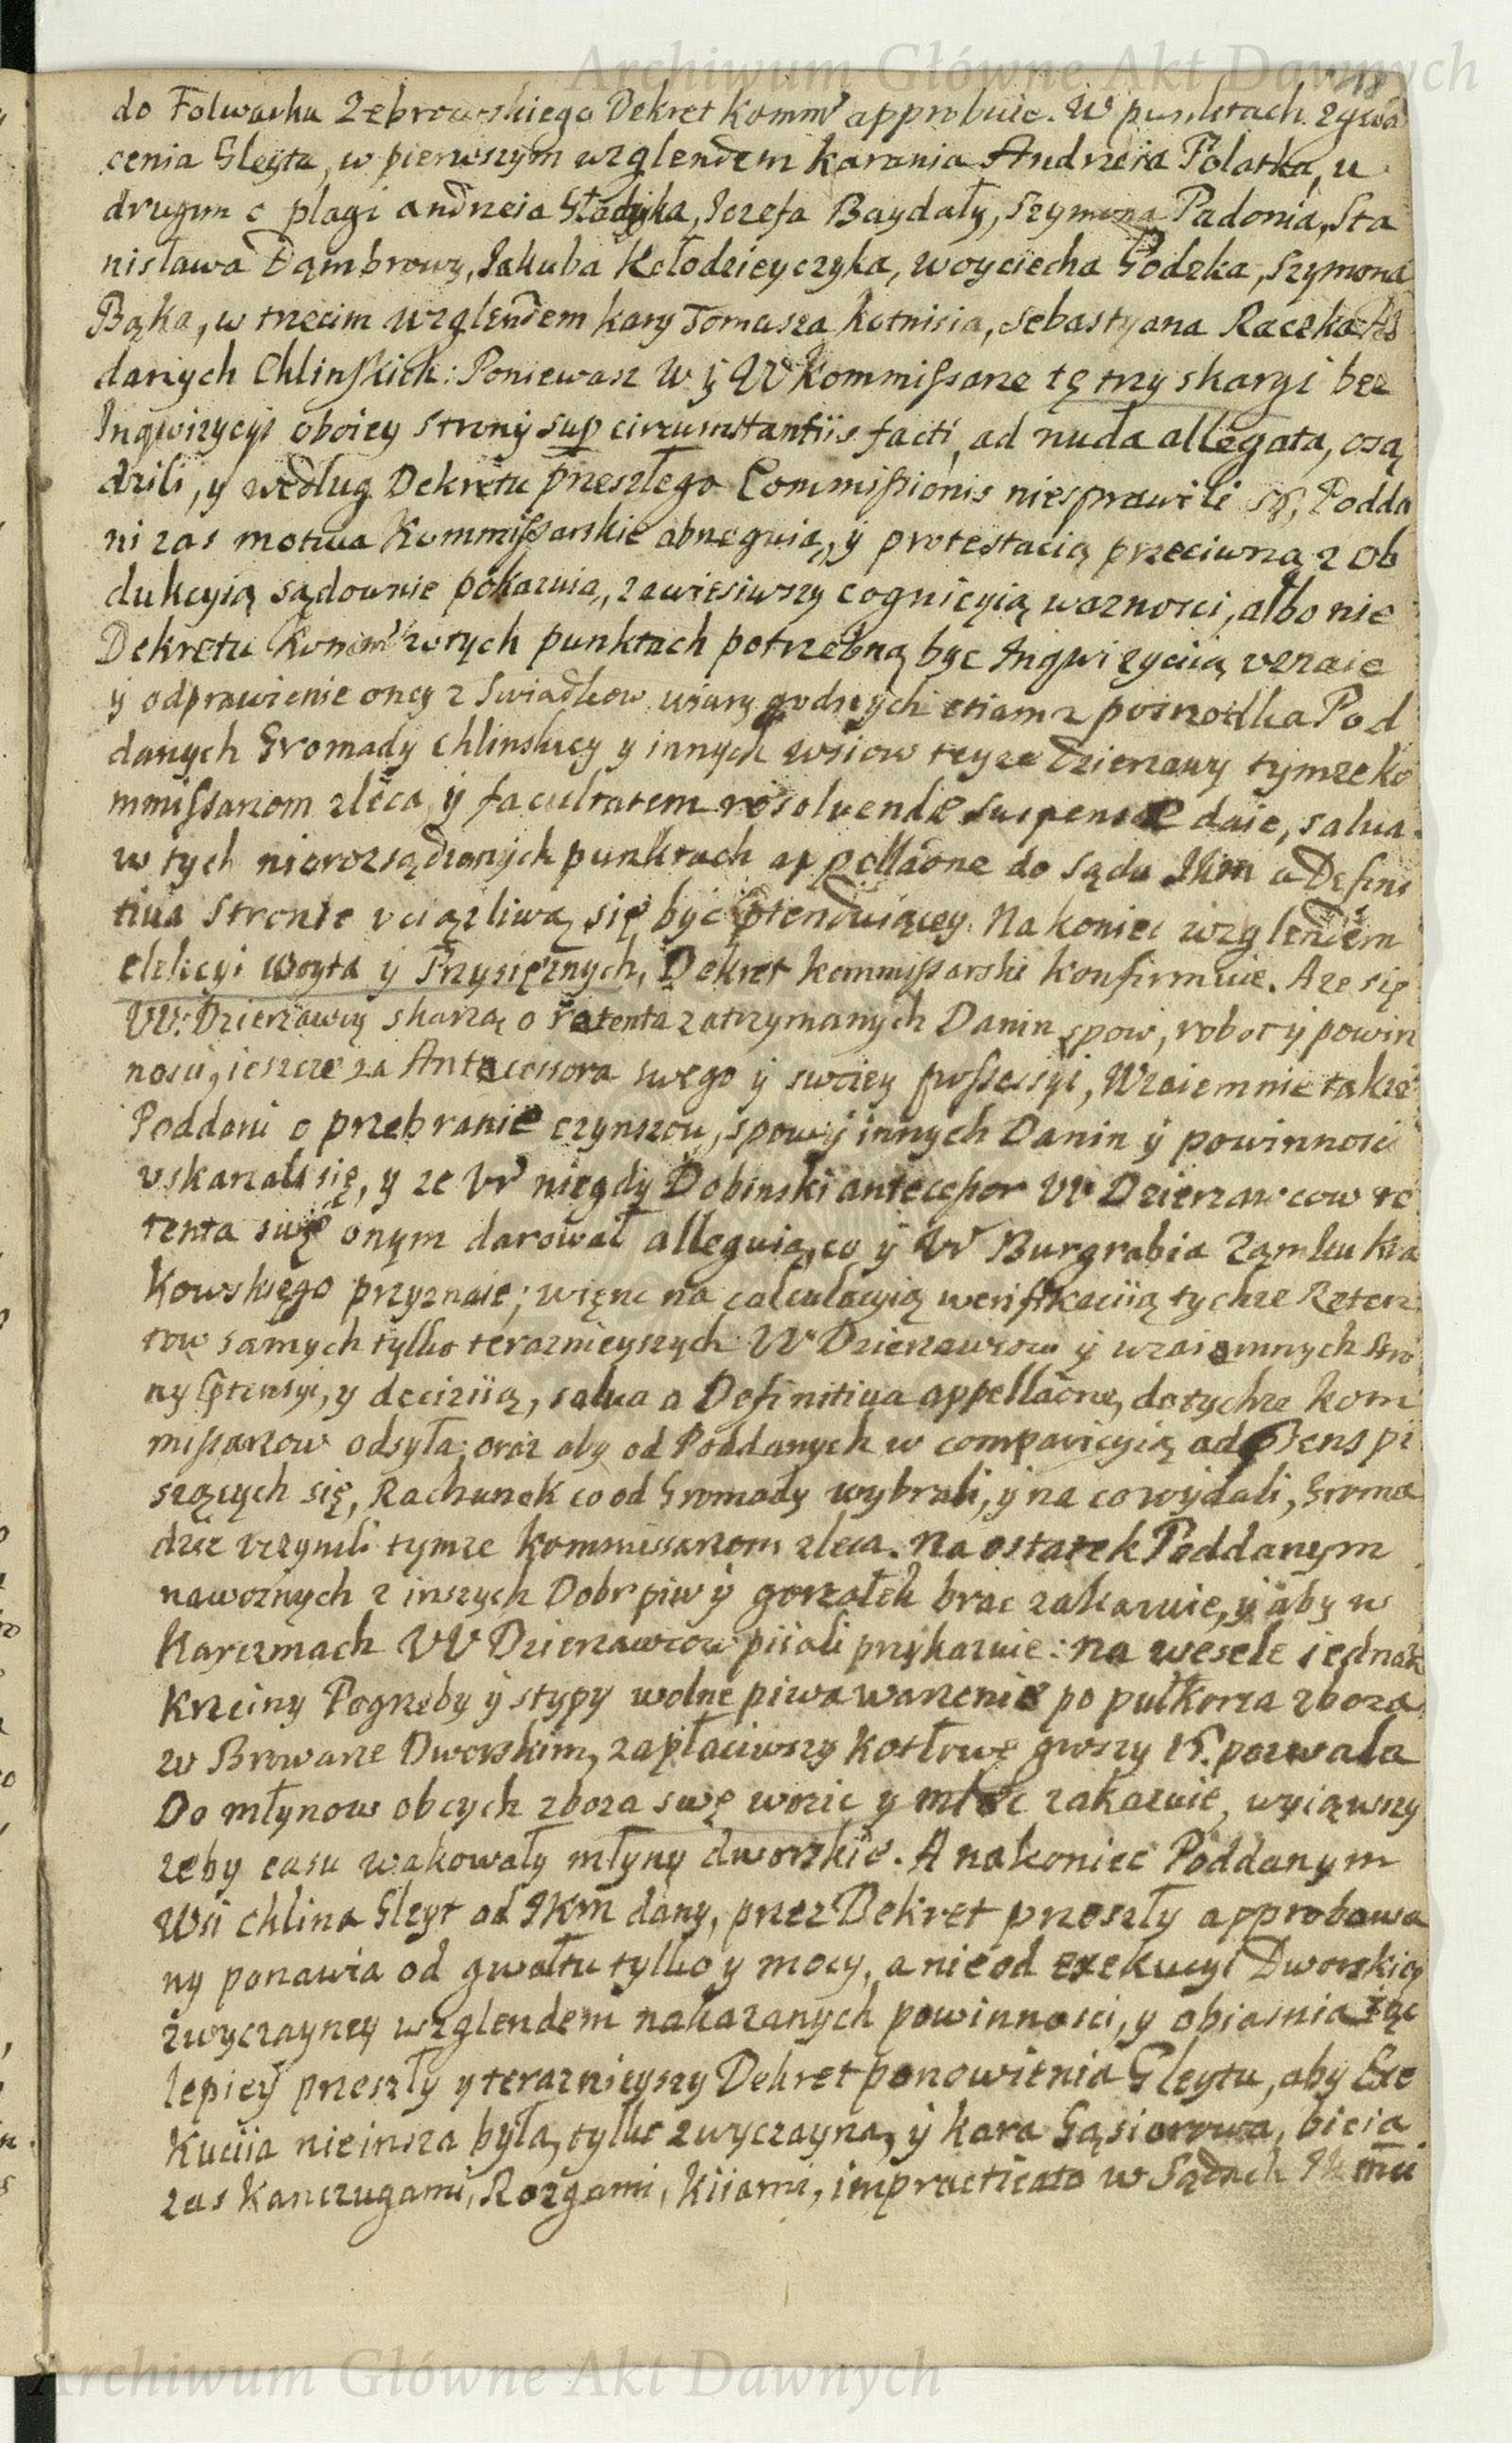 Archiwum Główne Akt Dawnych
do Folwarku Zebrowskiego Dekret Komm approbuie. W punktach zgwał
cenia Gleytu, w pierwszym wzglendem karania Andrzeia Polatka, w
drugim o plagi andrzeia Gładyka, Jozefa Baydały, Szymona Padonia, Sta
nisława Dąmbrowy, Jakuba Kołodzieyczyka, woyciecha Godzka, Szymona
Bąka, w trzecim wzglendem kary Tomasza Kotnisia, Sebastyana Raczka Pod
danych Chlinskich: Poniewasz W y W Kommissarze tę trzy skargi bez
Inqwizycyi oboiey strony sup circumstantiis facti, ad nuda allegata, osą
dzili, y według Dekretu przeszłego Commissionis niesprawili się, Podda
ni zas motiva Kommissarskie abneguią, y protestacią przeciwną z ob
dukcyią sądownie pokazuią, zawiesiwszy cognicyią waznosci, albo nie
Dekretu Komm w tych punktach potrzebną byc Inqwizycią uznaie
y odprawienie oney z Swiadkow wiary godnych etiam z posrzodka Pod
danych Gromady Chlinskiey y innych wsiow teyze Dzierzawy tymze ko
mmissarzom zleca y facultatem resolvendae suspensae daie, salva
w tych nierozsądzonych punktach appellaōne do sądu JKm a Defini
tiva Stronie uciązliwą się byc ptenduiącey. Na koniec wzglendem
elekcyi Woyta y Przysięznych, Dekret kommissarski konfirmuie. A ze się
W: Dzierzawcy skarzą o retenta zatrzymanych Danin, spow, robot y powin
nosci, ieszcze za Antecessora swego y swoiey possessyi, Wzaiemnie takze
Poddani o przebranie czynszow, spow y innych Danin y powinnosci
uskarzali się, y ze W niegdy Dobinski antecessor W Dzierzawcow re
tenta swe onym darował alleguią, co y W Burgrabia Zamku kra
kowskiego przyznaie; więnc na calculacyią weryfikaciią tychze Reten
tow samych tylko teraznieyszych W Dzierzawcow y wzaiemnych stro
ny ptensyi, y deciziią, salva a Definitiva appellaōne, do tychze kom
missarzow odsyła; oraz aby od Poddanych w comparicyią ad psens pi
szących się, Rachunek co od Gromady wybrali, y na co wydali, Groma
dzie uczynili tymze kommissarzom zleca. Na ostatek Poddanym
nawoznych z inszych Dobr piw y gorzałek brac zakazuie, y aby w
Karczmach W Dzierzawcow piiali przykazuie: na wesele iednak
Krzciny Pogrzeby y stypy wolne piwa warzenie po pułkorca zboza
w Browarze Dworskim, zapłaciwszy Kotłowe groszy 15. pozwala
Do młynow obcych zboza swe wozic y mleć zakazuie, wyiąwszy
zeby casu wakowały młyny dworskie. A nakoniec Poddanym
Wsi Chlina Gleyt od JKm dany, przez Dekret przeszły approbowa
ny ponawia od gwałtu tylko y mocy, a nie od exekucyi Dworskiey
zwyczayney wzglendem nakazanych powinnosci, y obiasniaiąc
lepiey przeszły y teraznieyszy Dekret ponowienia Gleytu, aby Exe
kuciia nieinsza była, tylko zwyczayna, y kara Gąsiorowa, bicia
zas Kanczugami, Rozgami, Kiiami, impracticata w Sądach JKm
Archiwum Główne Akt Dawnych